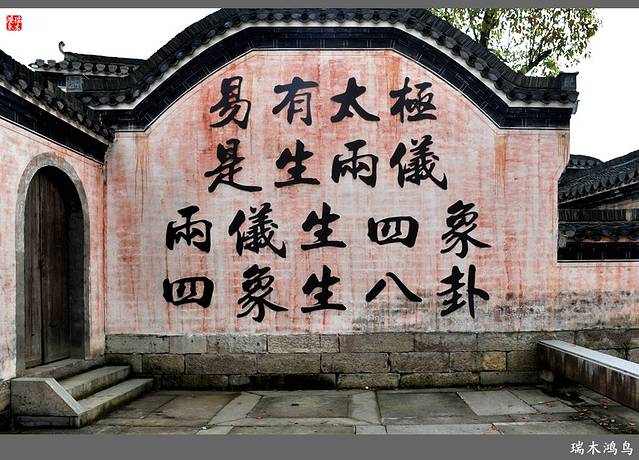 易有太極
是生兩儀
兩儀生四象
四象生八卦
瑞木鸿鸟